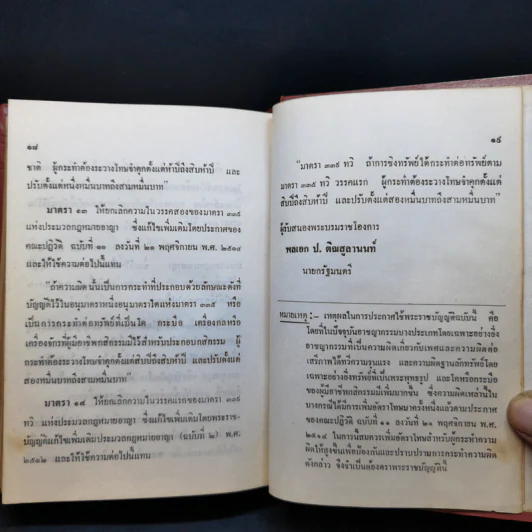 ๑๘
ชาติ ผู้กระทำต้องระวางโทษจำคุกตั้งแต่ห้าปีถึงสิบห้าปี และ
ปรับตั้งแต่หนึ่งหมื่นบาทถึงสามหมื่นบาท"
มาตรา ๑๓ ให้ยกเลิกความในวรรคสองของมาตรา ๓๓๕
แห่งประมวลกฎหมายอาญา ซึ่งแก้ไขเพิ่มเติมโดยประกาศของ
คณะปฏิวัติ ฉบับที่ ๑๑ ลงวันที่ ๒๑ พฤศจิกายน พ.ศ. ๒๕๑๔
และให้ใช้ความต่อไปนี้แทน
"ถ้าความผิดนั้นเป็นการกระทำที่ประกอบด้วยลักษณะดังที่
บัญญัติไว้ในอนุมาตราหนึ่งอนุมาตราใดแห่งมาตรา ๓๓๕ หรือ
เป็นการกระทำต่อทรัพย์ที่เป็นโค กระบือ เครื่องกลหรือ
เครื่องจักรที่ผู้มีอาชีพกสิกรรมมีไว้สำหรับประกอบกสิกรรม ผู้
กระทำต้องระวางโทษจำคุกตั้งแต่สิบปีถึงสิบห้าปี และปรับตั้งแต่
สองหมื่นบาทถึงสามหมื่นบาท"
มาตรา ๑๔ ให้ยกเลิกความในวรรคแรกของมาตรา ๓๓๙
ทวิ แห่งประมวลกฎหมายอาญา ซึ่งแก้ไขเพิ่มเติมโดยพระราช-
บัญญัติแก้ไขเพิ่มเติมประมวลกฎหมายอาญา (ฉบับที่ ๒) พ.ศ.
๒๕๑๒ และให้ใช้ความต่อไปนี้แทน
๑๙
"มาตรา ๓๓๙ ทวิ ถ้าการชิงทรัพย์ได้กระทำต่อทรัพย์ตาม
มาตรา ๓๓๕ ทวิ วรรคแรก ผู้กระทำต้องระวางโทษจำคุกตั้งแต่
สิบปีถึงสิบห้าปี และปรับตั้งแต่สองหมื่นบาทถึงสามหมื่นบาท"
ผู้รับสนองพระบรมราชโองการ
พลเอก ป. ติณสูลานนท์
นายกรัฐมนตรี
หมายเหตุ :- เหตุผลในการประกาศใช้พระราชบัญญัติฉบับนี้ คือ
โดยที่ในปัจจุบันอาชญากรรมบางประเภทโดยเฉพาะอย่างยิ่ง
อาชญากรรมที่เป็นความผิดเกี่ยวกับเพศและความผิดต่อ
เสรีภาพได้ทวีความรุนแรง และความผิดฐานลักทรัพย์โดย
เฉพาะอย่างยิ่งทรัพย์ที่เป็นพระพุทธรูป และโคหรือกระบือ
ของผู้มีอาชีพกสิกรรมมีเพิ่มมากขึ้น ซึ่งความผิดเหล่านี้ใน
บางกรณีได้มีการเพิ่มอัตราโทษมาครั้งหนึ่งแล้วตามประกาศ
ของคณะปฏิวัติ ฉบับที่ ๑๑ ลงวันที่ ๒๑ พฤศจิกายน พ.ศ.
๒๕๑๔ ในการนี้สมควรเพิ่มอัตราโทษสำหรับผู้กระทำความ
ผิดให้สูงขึ้นเพื่อป้องกันและปราบปรามการกระทำความผิด
ดังกล่าว จึงจำเป็นต้องตราพระราชบัญญัตินี้